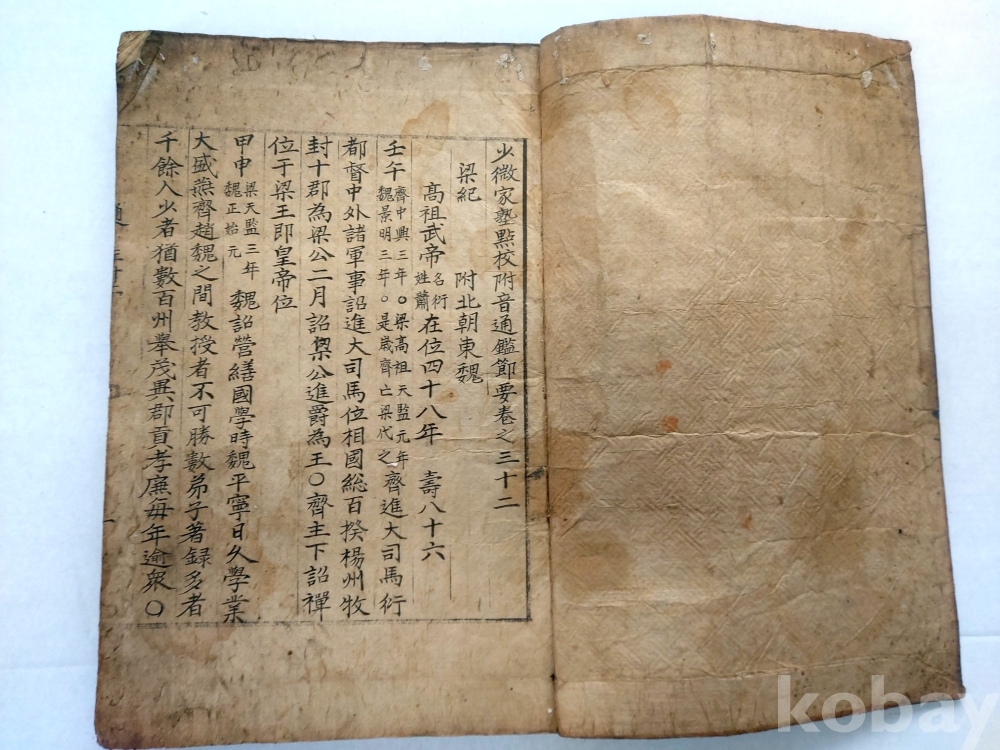 少微家塾點校附音通鑑節要卷之三十二
梁紀 附北朝東魏
高祖武帝 名衍姓蕭 在位四十八年 壽八十六
壬午 齊中興三年○梁高祖天監元年魏景明三年○是歲齊亡梁代之 齊進大司馬衍
都督中外諸軍事詔進大司馬位相國総百揆楊州牧
封十郡為梁公二月詔梁公進爵為王○齊主下詔禪
位于梁王即皇帝位
甲申 梁天監三年魏正始元 魏詔營繕國學時魏平寧日久學業
大盛燕齊趙魏之間教授者不可勝數弟子著録多者
千餘人少者猶數百州舉茂異郡貢孝廉每年逾衆○
kobay